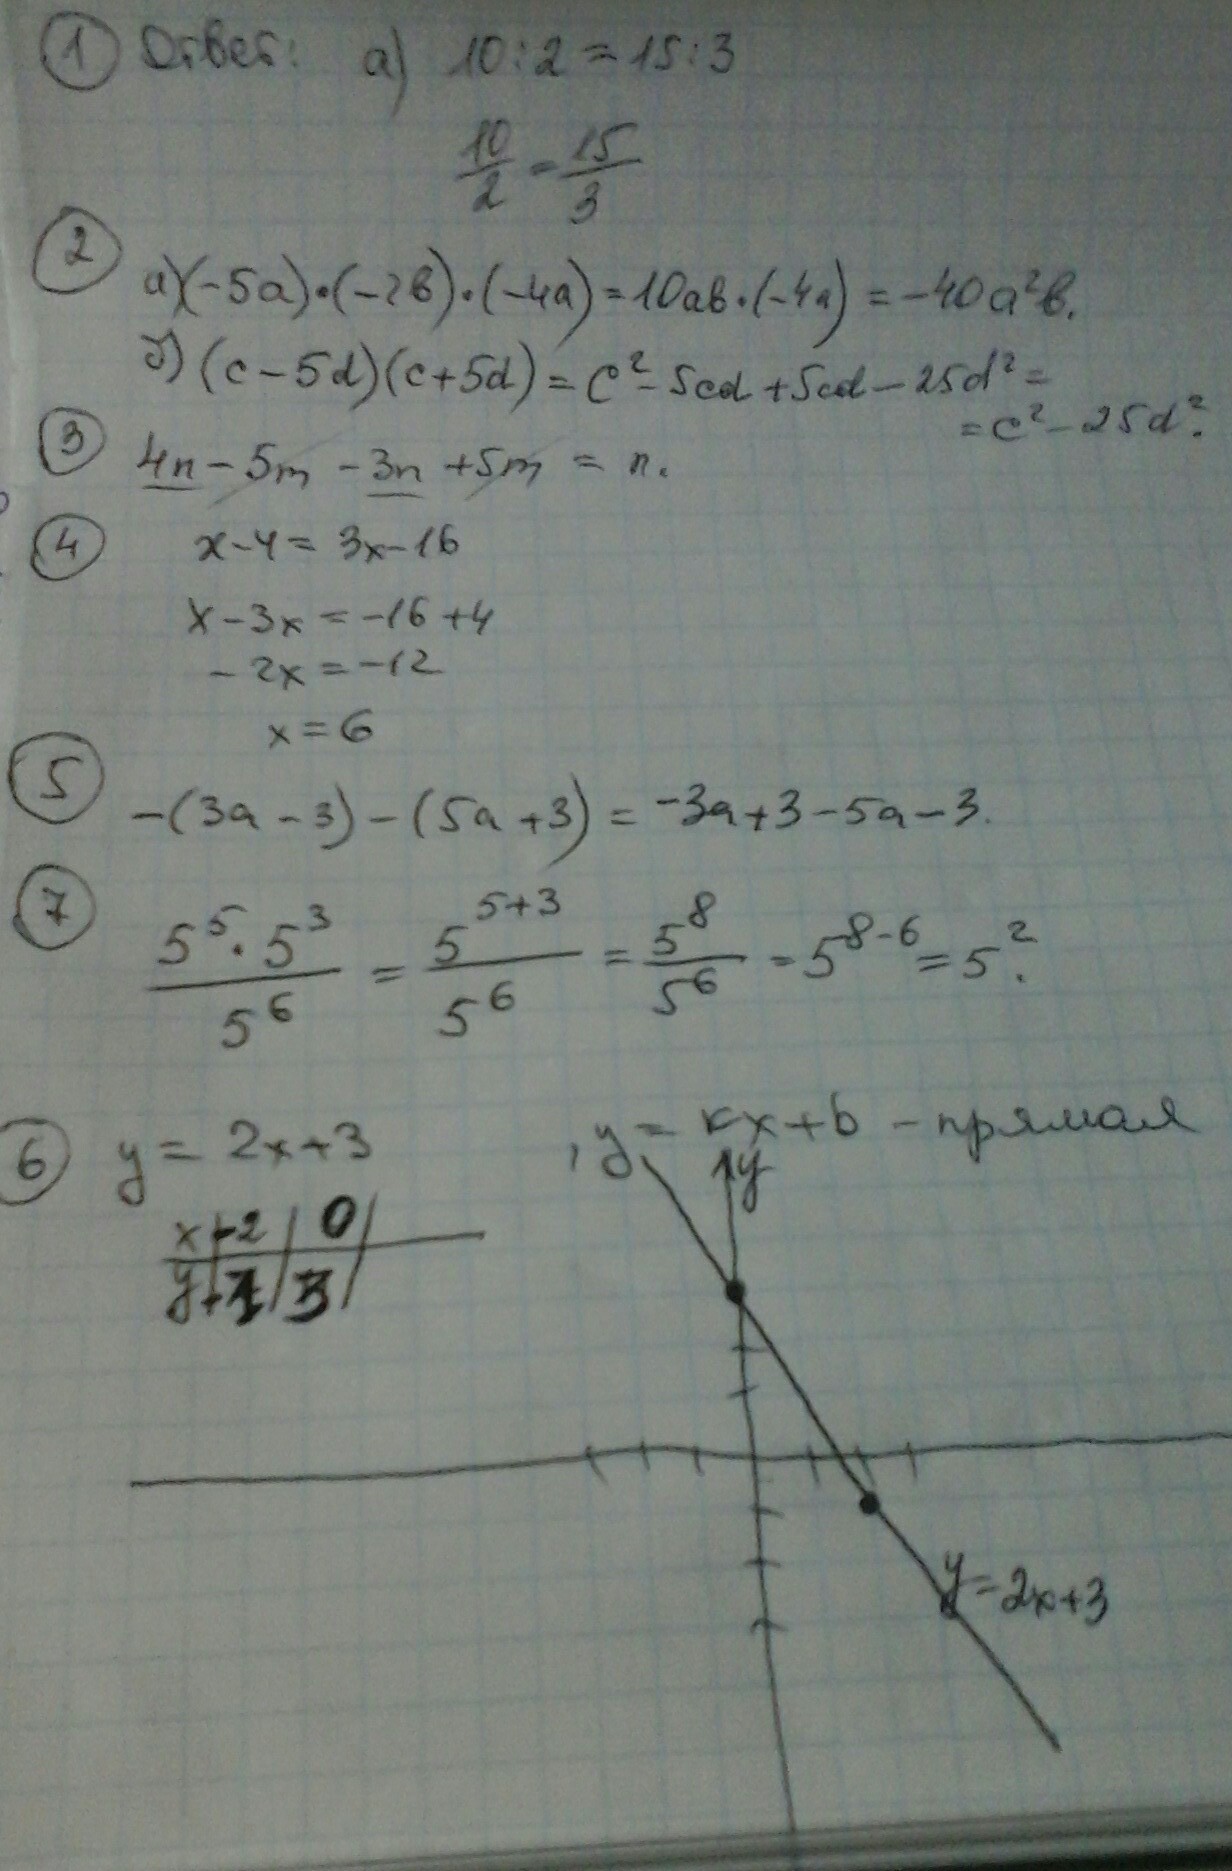 1 Ответ: а) 10:2=15:3
10/2 = 15/3
2 а)(-5a)·(-2b)·(-4a)=10ab·(-4a)=-40a²b.
б) (c-5d)(c+5d)=c²-5cd+5cd-25d²=
=c²-25d².
3 4n-5m-3n+5m=n.
4 x-4=3x-16
x-3x=-16+4
-2x=-12
x=6
5 -(3a-3)-(5a+3)=-3a+3-5a-3.
7 5⁵·5³/5⁶ = 5⁵⁺³/5⁶ = 5⁸/5⁶ = 5⁸⁻⁶=5².
6 y=2x+3 , y=kx+b - прямая
y
x|-2|0|
y|-1|3|
y=2x+3